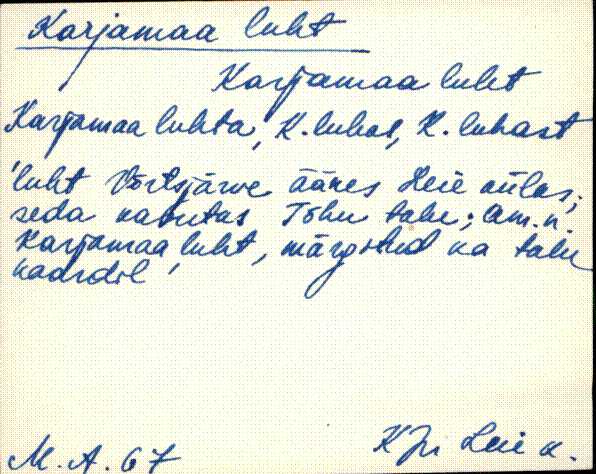 Karjamaa luht
Karjamaa luht
Karjamaa luhta, K. luhas, K. luhast
'luht Võrtsjärve ääres Leie külas;
seda kasutas Tõhu talu; am. n.
Karjamaa luht, märgitud ka talu
kaardil'
M. A. 67 KJn Leie k.